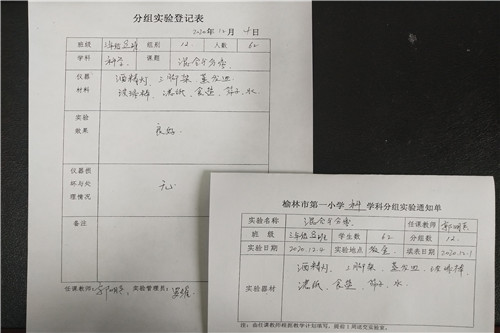 分组实验登记表
2020年12月4日
班级 三年级五班 组别 12 人数 62
学科 科学 课题 混合与分离
仪器材料 酒精灯 三脚架 蒸发皿
玻璃棒 滤纸 食盐 筛子 水
实验效果 良好
仪器损坏与处理情况 无
备注
任课教师: 实验管理员:
榆林市第一小学 科 学科分组实验通知单
实验名称 混合与分离 任课教师
班级 三年级五班 学生数 62 分组数 12
实验日期 2020.12.4 实验地点 教室 填表日期 2020.12.1
实验器材 酒精灯、三脚架、蒸发皿、玻璃棒
滤纸、食盐、筛子、水
注:由任课教师根据教学计划填写,提前1周送交实验室。